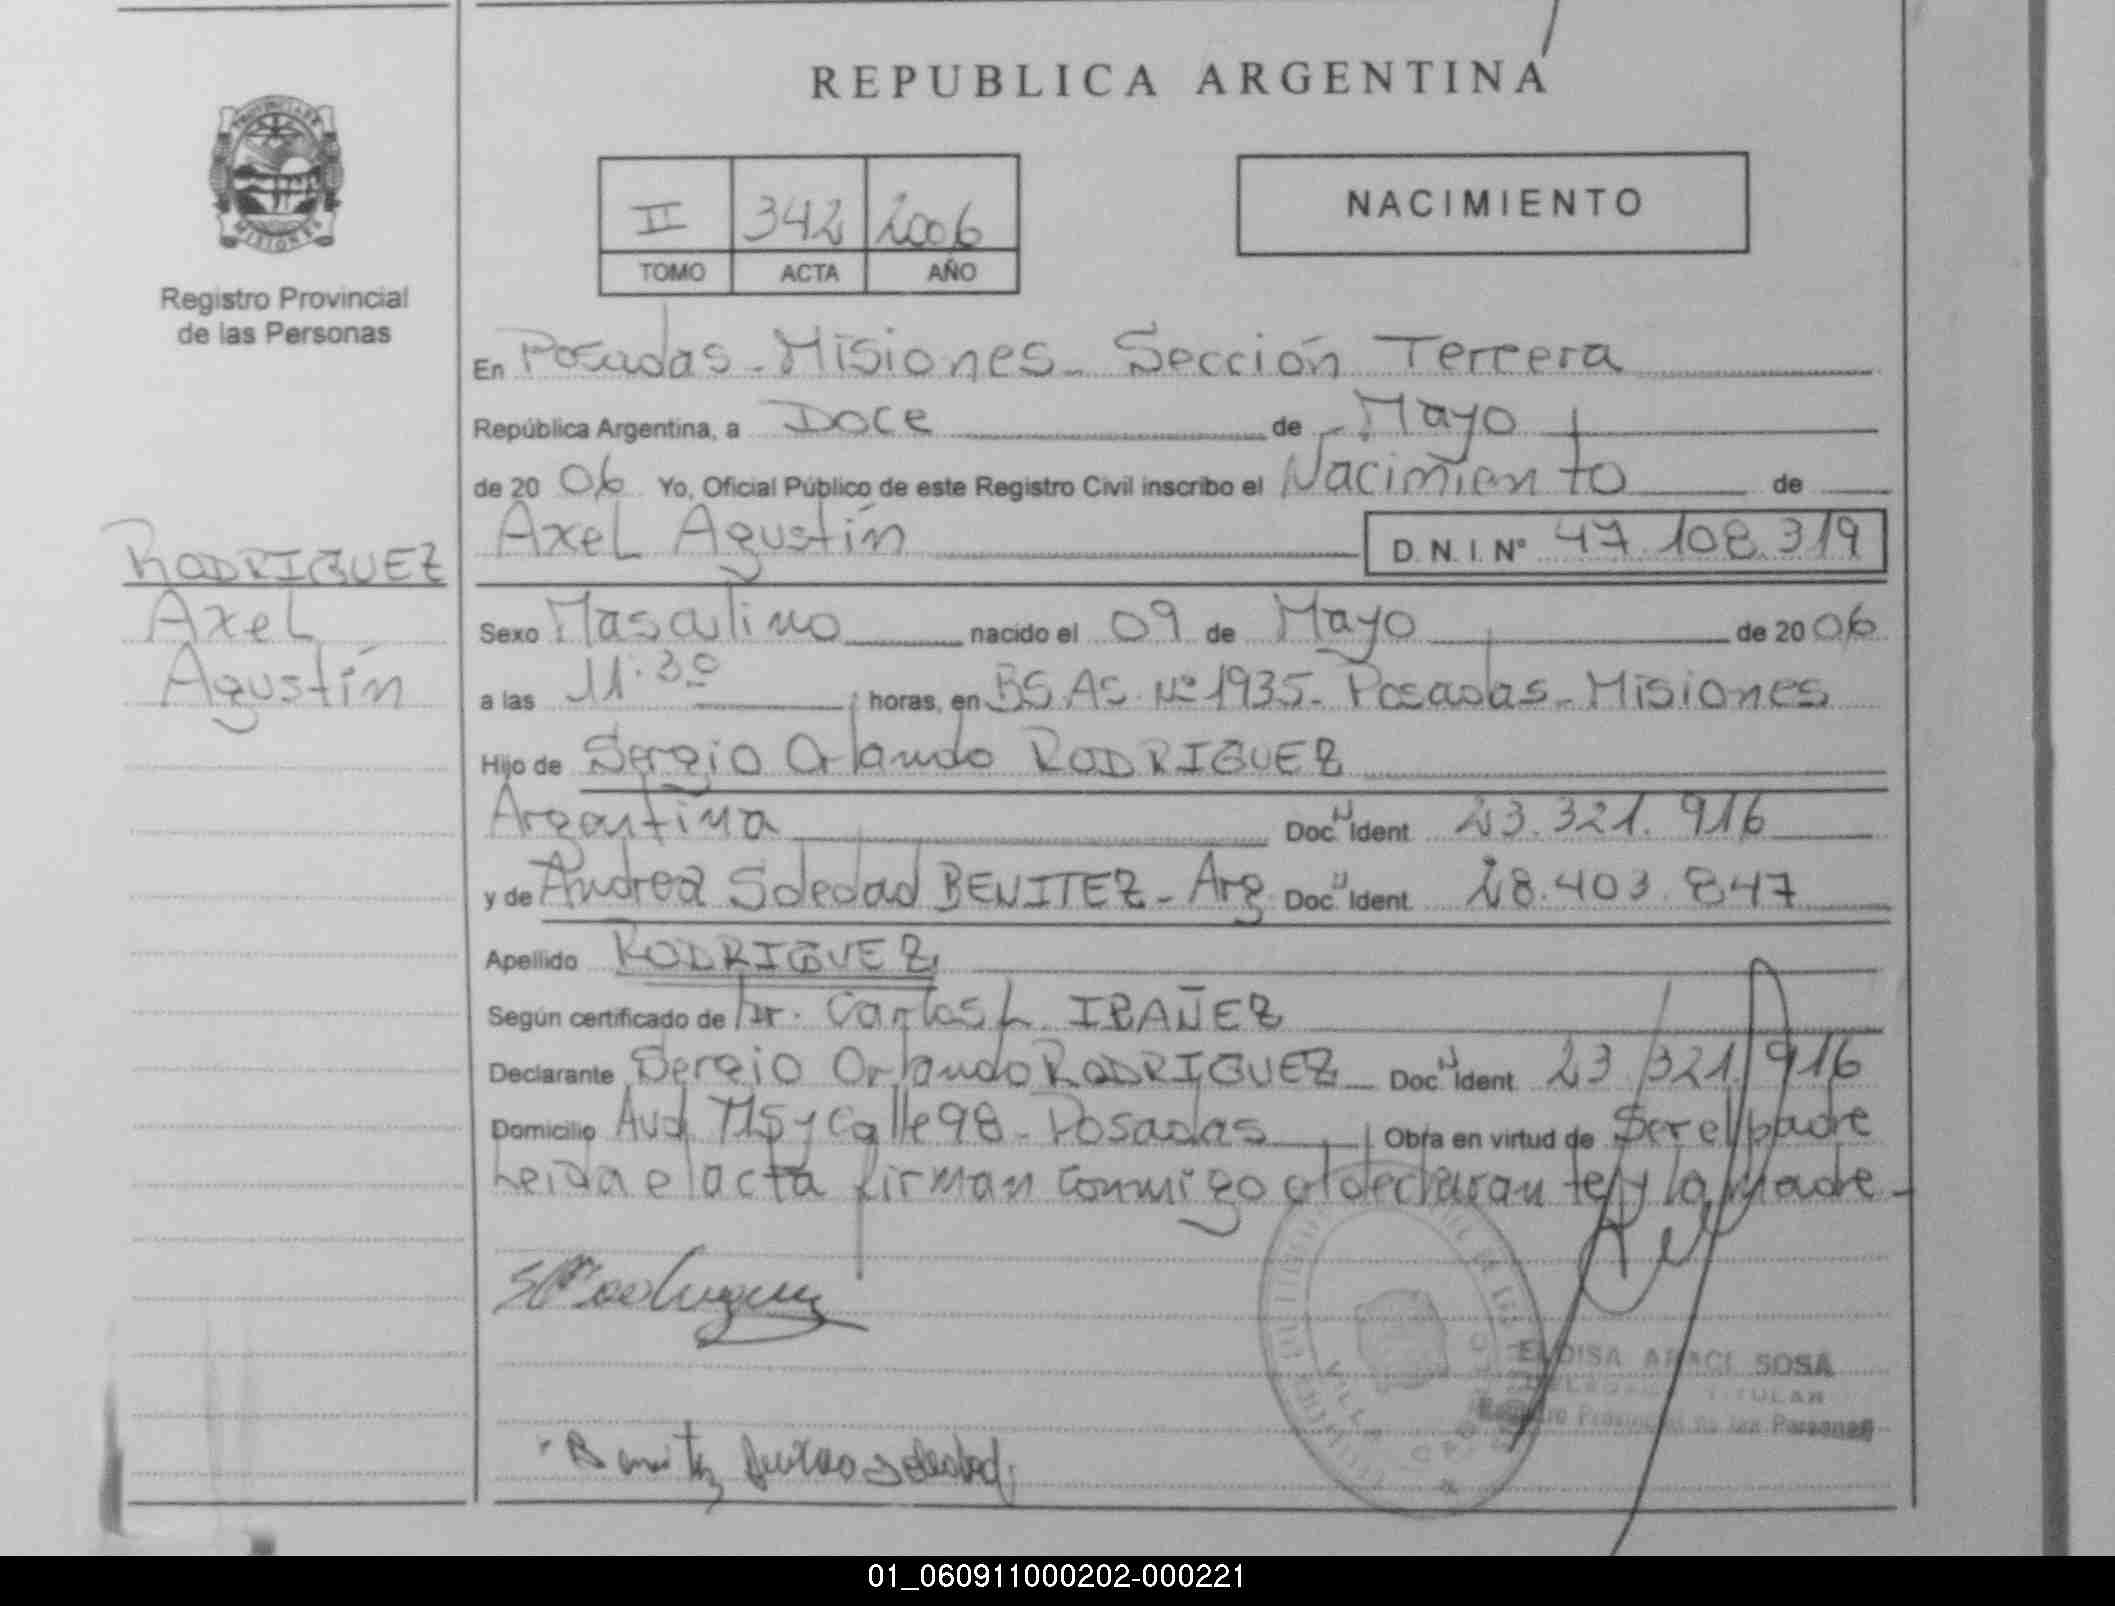 REPUBLICA ARGENTINA
PROVINCIA DE
MISIONES
Registro Provincial
de las Personas
II 342 2006
TOMO ACTA AÑO
NACIMIENTO
En Posadas - Misiones - Sección Tercera
República Argentina, a Doce de Mayo
de 2006 Yo, Oficial Público de este Registro Civil inscribo el Nacimiento de
Axel Agustín D. N. I. N° 47.108.319
RODRIGUEZ
Axel
Agustín
Sexo Masculino nacido el 09 de Mayo de 2006
a las 11.30 horas, en BS.AS. Nº 1935 - Posadas - Misiones
Hijo de Sergio Orlando RODRIGUEZ
Argentina Doc. Ident 23.321.916
y de Andrea Soledad BENITEZ - Arg. Doc. Ident 28.403.847
Apellido RODRIGUEZ
Según certificado de Dr. Carlos L. IBAÑEZ
Declarante Sergio Orlando RODRIGUEZ Doc. Ident 23.321.916
Domicilio Avd 115 y Calle 98 - Posadas Obra en virtud de Ser el padre
Leida el acta firman conmigo el declarante y la Madre -
Benitez Andrea Soledad
ELOISA ARACI SOSA
TITULAR
Registro Provincial de las Personas
01_060911000202-000221